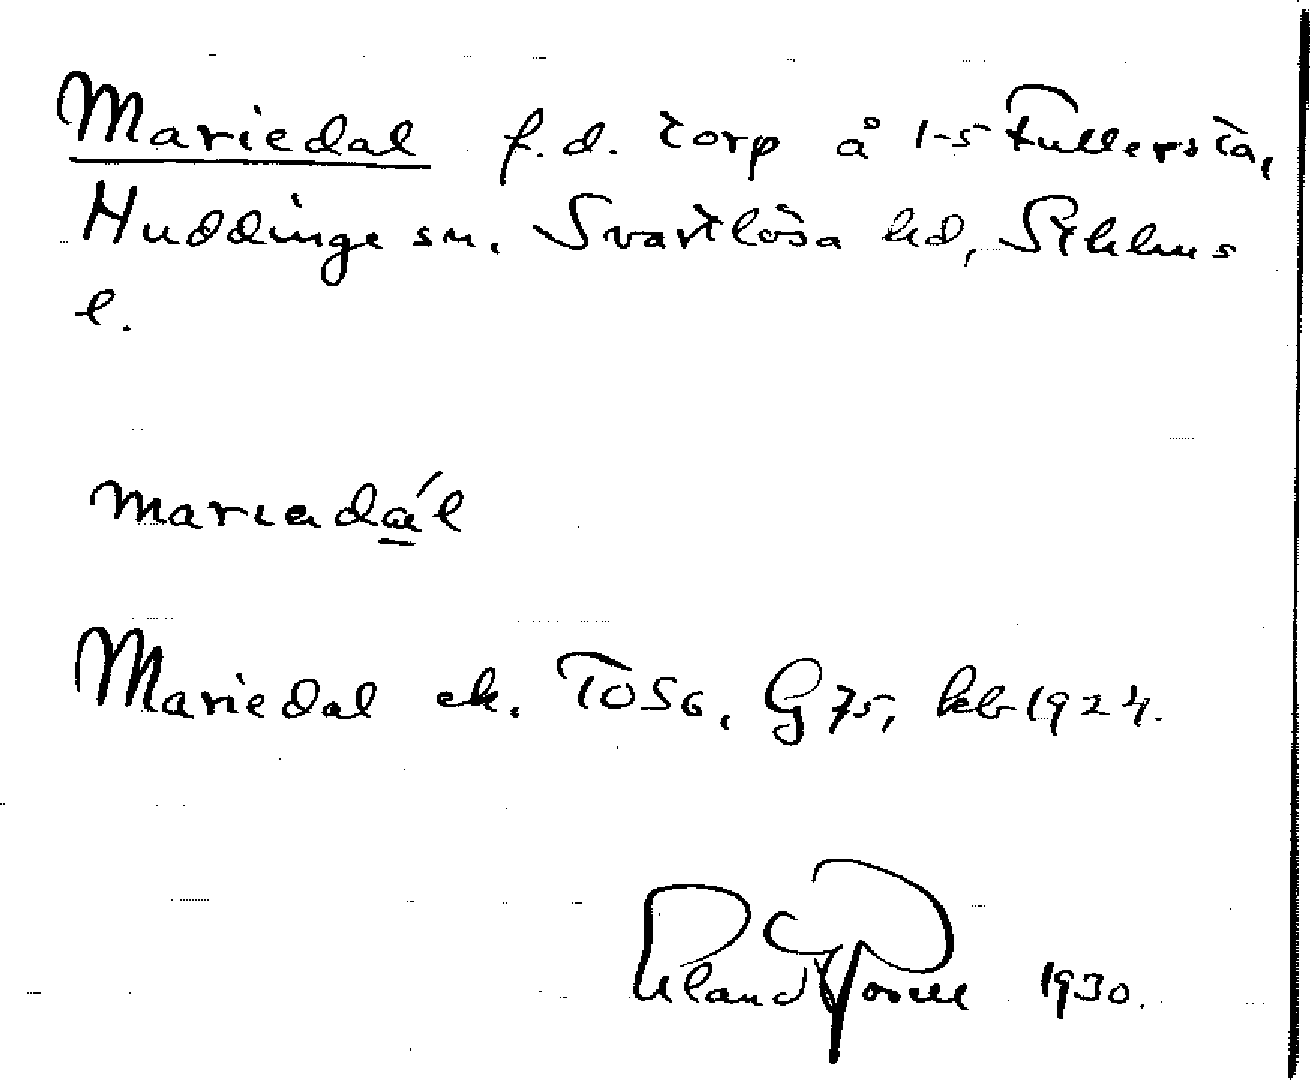 Mariedal f.d. torp å 1-5 Fullersta,
Huddinge sn. Svartlösa hd, Sthlms
l.
mariadál
Mariedal ek. T056, G75, kb 1924.
1930.